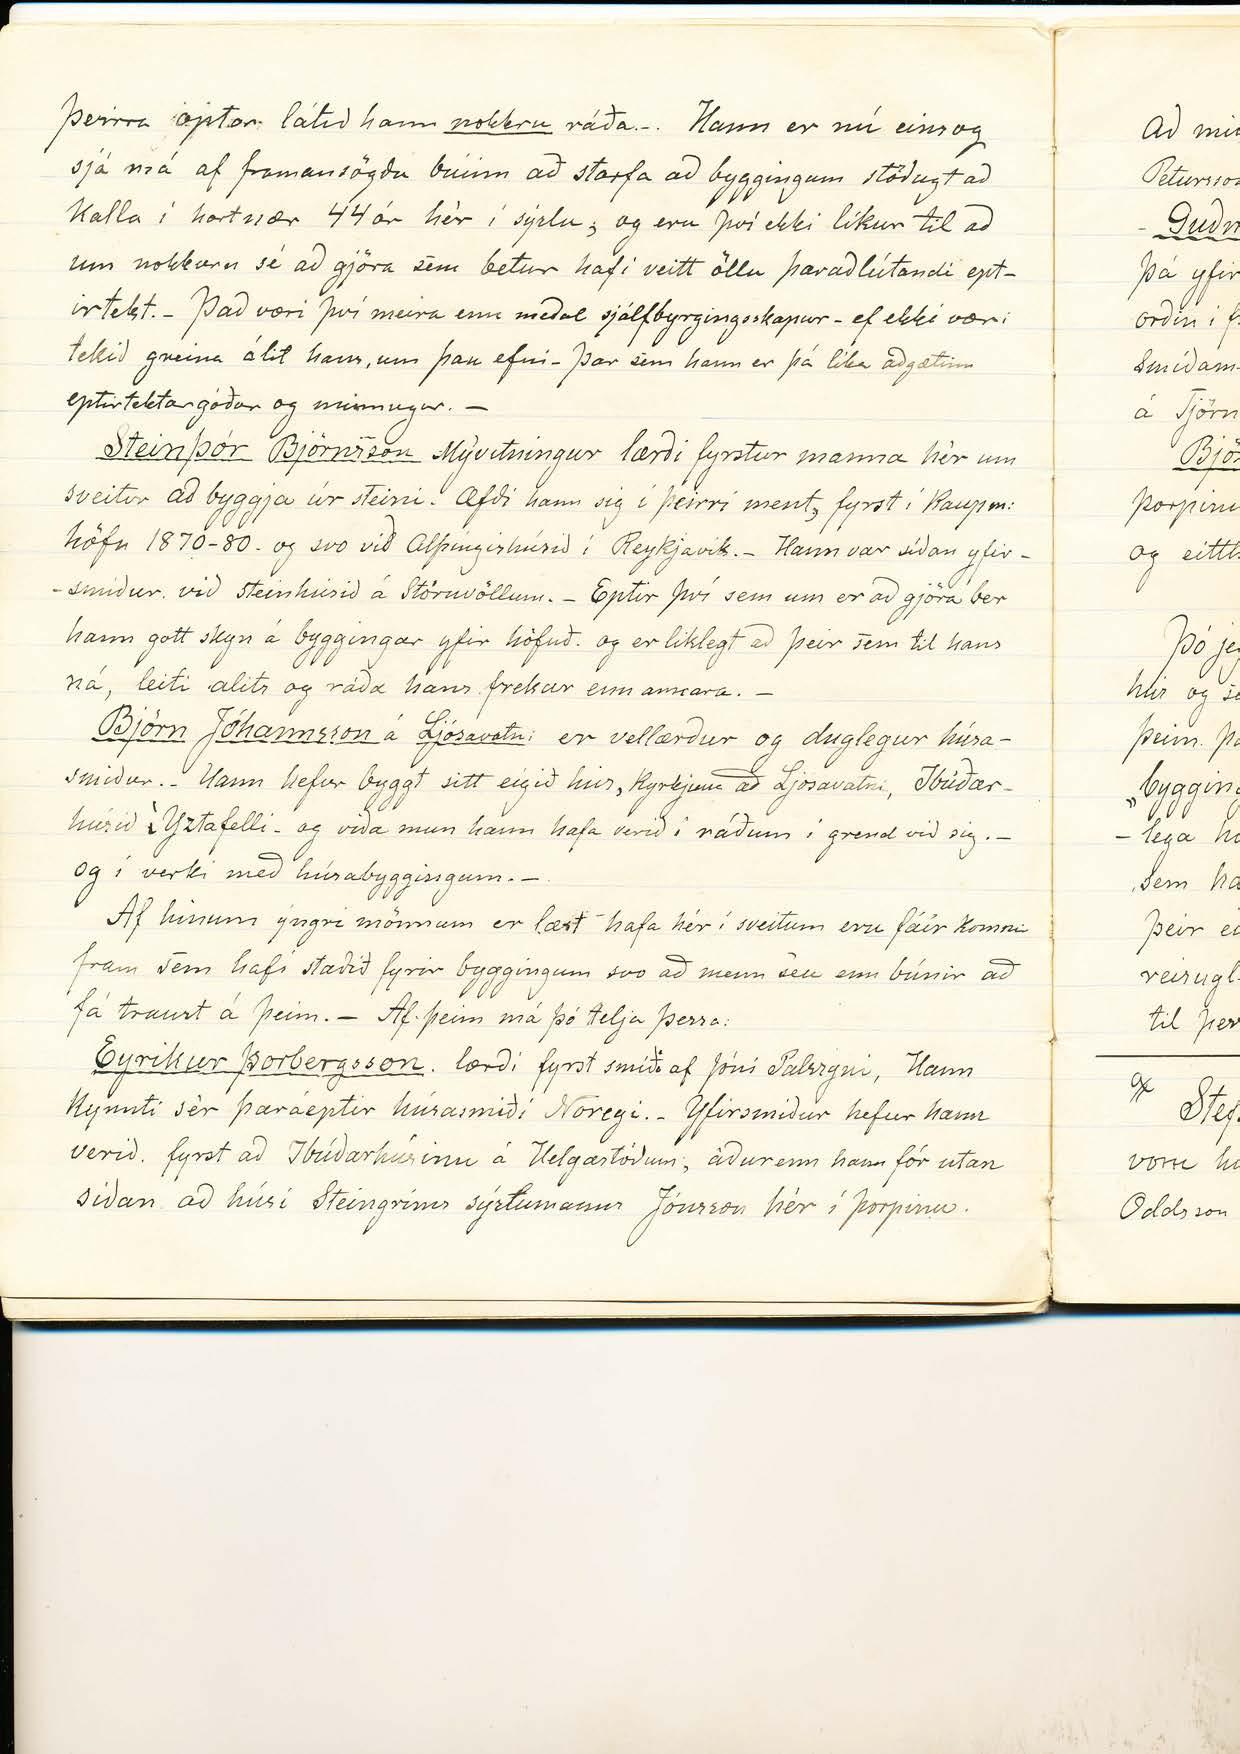 þeirra optar látið hann nokkru ráða.-. Hann er nú eins og
sjá má af framansögðu búinn að starfa að byggingum stöðugt að
kalla í hartnær 44 ár hér í sýslu; og eru því ekki líkur til að
um nokkurn sé að gjöra sem betur hafi veitt öllu þaraðlútandi ept-
irtekt. - Það væri því meira enn meðal sjálfbyrgingsskapur - ef ekki væri
tekið greina álit hans, um þau efni - Þar sem hann er þá líka aðgætinn
eptirtektargóður og minnugur. -
Steinþór Björnsson Mývetningur lærði fyrstur manna hér um
sveitir að byggja úr steini. Æfði hann sig í þeirri ment, fyrst í Kaupm:
höfn 1870-80. og svo við Alþingishúsið í Reykjavík. - Hann var síðan yfir-
-smiður við steinhúsið á Stóruvöllum. - Eptir því sem um er að gjöra ber
hann gott skyn á byggingar yfir höfuð. og er líklegt að þeir sem til hans
ná, leiti álits og ráða hans frekar enn annara. -
Björn Jóhannsson á Ljósavatni er vellærður og duglegur húsa-
smiður. - Hann hefur byggt sitt eigið hús, Kyrkjuna að Ljósavatni, Íbúðar-
húsið í Yztafelli - og víða mun hann hafa verið í ráðum í grend við sig. -
og í verki með húsabyggingum. -
Af hinum yngri mönnum er lært hafa hér í sveitum eru fáir komnir
fram sem hafi staðið fyrir byggingum svo að menn séu enn búnir að
fá traust á þeim. - Af þeim má þó telja þessa:
Eyrikur Þorbergsson. lærði fyrst smíði af Jóni Palssyni, Hann
Kynnti sér þaráeptir húsasmiði Noregi. - Yfirsmiður hefur hann
verið. fyrst að Íbúðarhúsinu á Helgastöðum, áðurenn hann fór utan
síðan að húsi Steingríms sýslumanns Jónsson hér í þorpinu.
Að
Petursson
Guðm
Þá yfir
orðin í
smíðam
á Tjörn
Björ
þorpinu
og eitth
Þó jeg
hús og
þeim
„bygging
- lega
sem
þeir
reisugl
til þes
Stef
voru
Oddsson